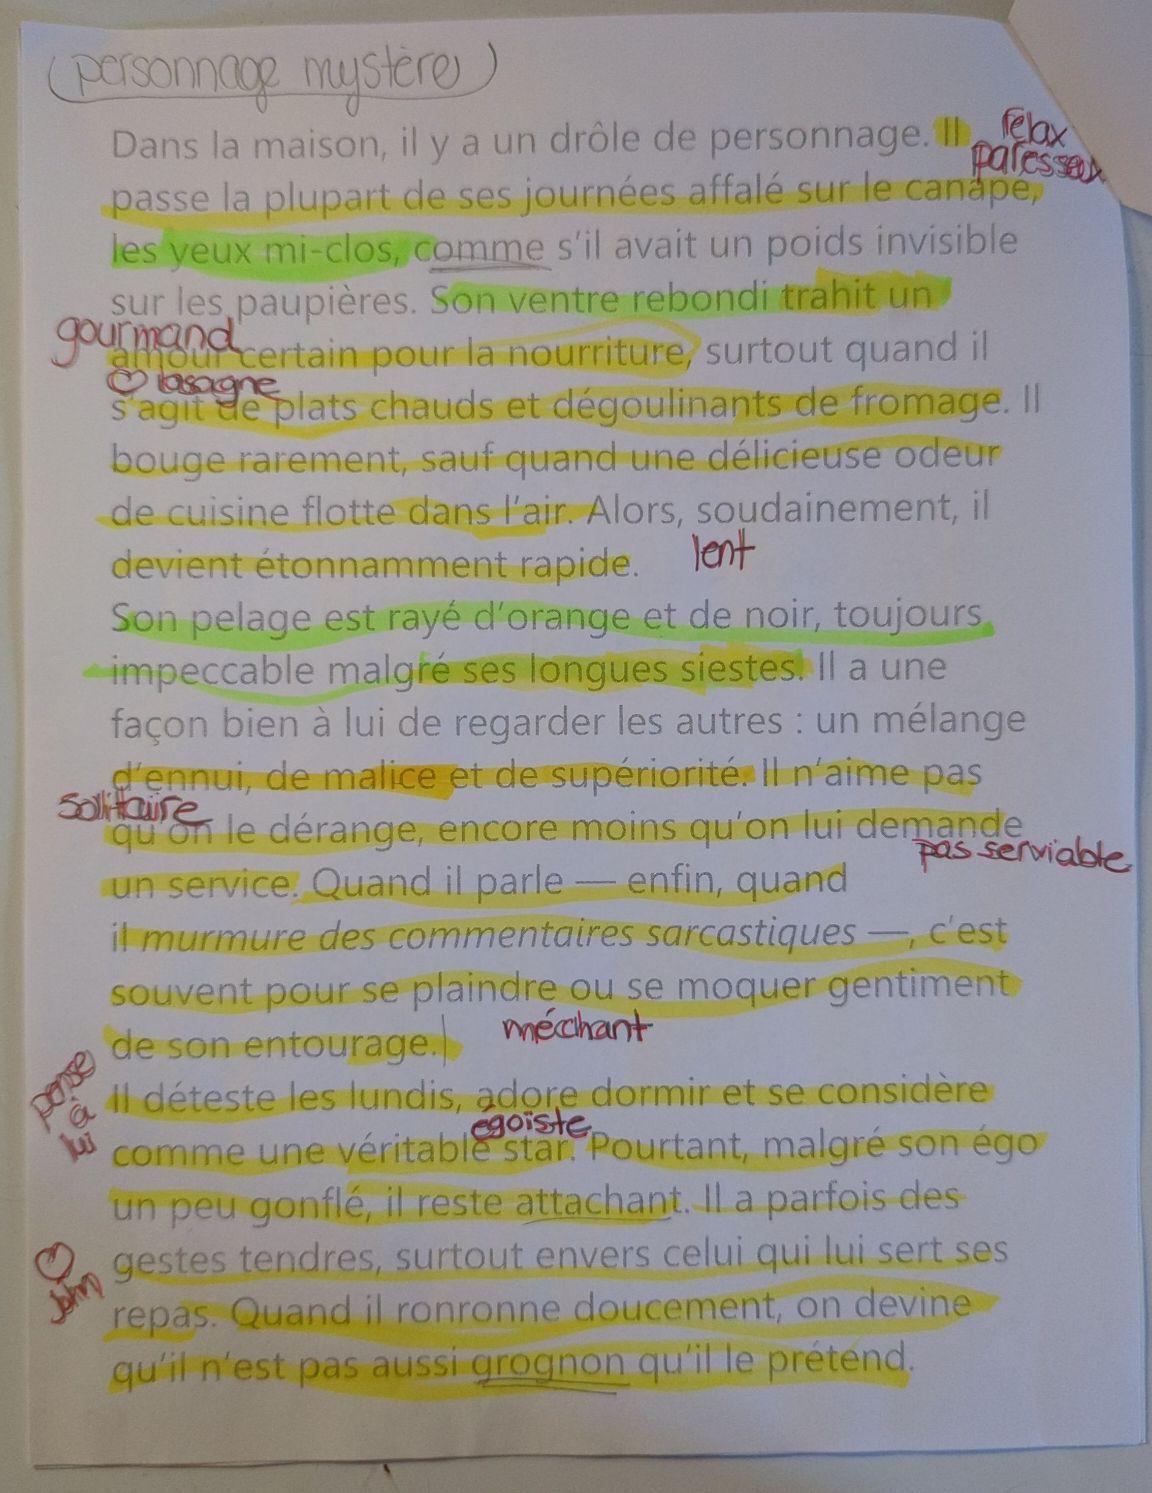 (personnage mystère)
Dans la maison, il y a un drôle de personnage. Il
relax
paresseux
passe la plupart de ses journées affalé sur le canapé,
les yeux mi-clos, comme s'il avait un poids invisible
sur les paupières. Son ventre rebondi trahit un
gourmand
amour certain pour la nourriture, surtout quand il
♡ lasagne
s'agit de plats chauds et dégoulinants de fromage. Il
bouge rarement, sauf quand une délicieuse odeur
de cuisine flotte dans l'air. Alors, soudainement, il
devient étonnamment rapide.
lent
Son pelage est rayé d'orange et de noir, toujours
impeccable malgré ses longues siestes. Il a une
façon bien à lui de regarder les autres : un mélange
d'ennui, de malice et de supériorité. Il n'aime pas
solitaire
qu'on le dérange, encore moins qu'on lui demande
pas serviable
un service. Quand il parle — enfin, quand
il murmure des commentaires sarcastiques —, c'est
souvent pour se plaindre ou se moquer gentiment
de son entourage.
mécchant
pense
à
lui
Il déteste les lundis, adore dormir et se considère
égoïste
comme une véritable star. Pourtant, malgré son égo
un peu gonflé, il reste attachant. Il a parfois des
♡
John
gestes tendres, surtout envers celui qui lui sert ses
repas. Quand il ronronne doucement, on devine
qu'il n'est pas aussi grognon qu'il le prétend.